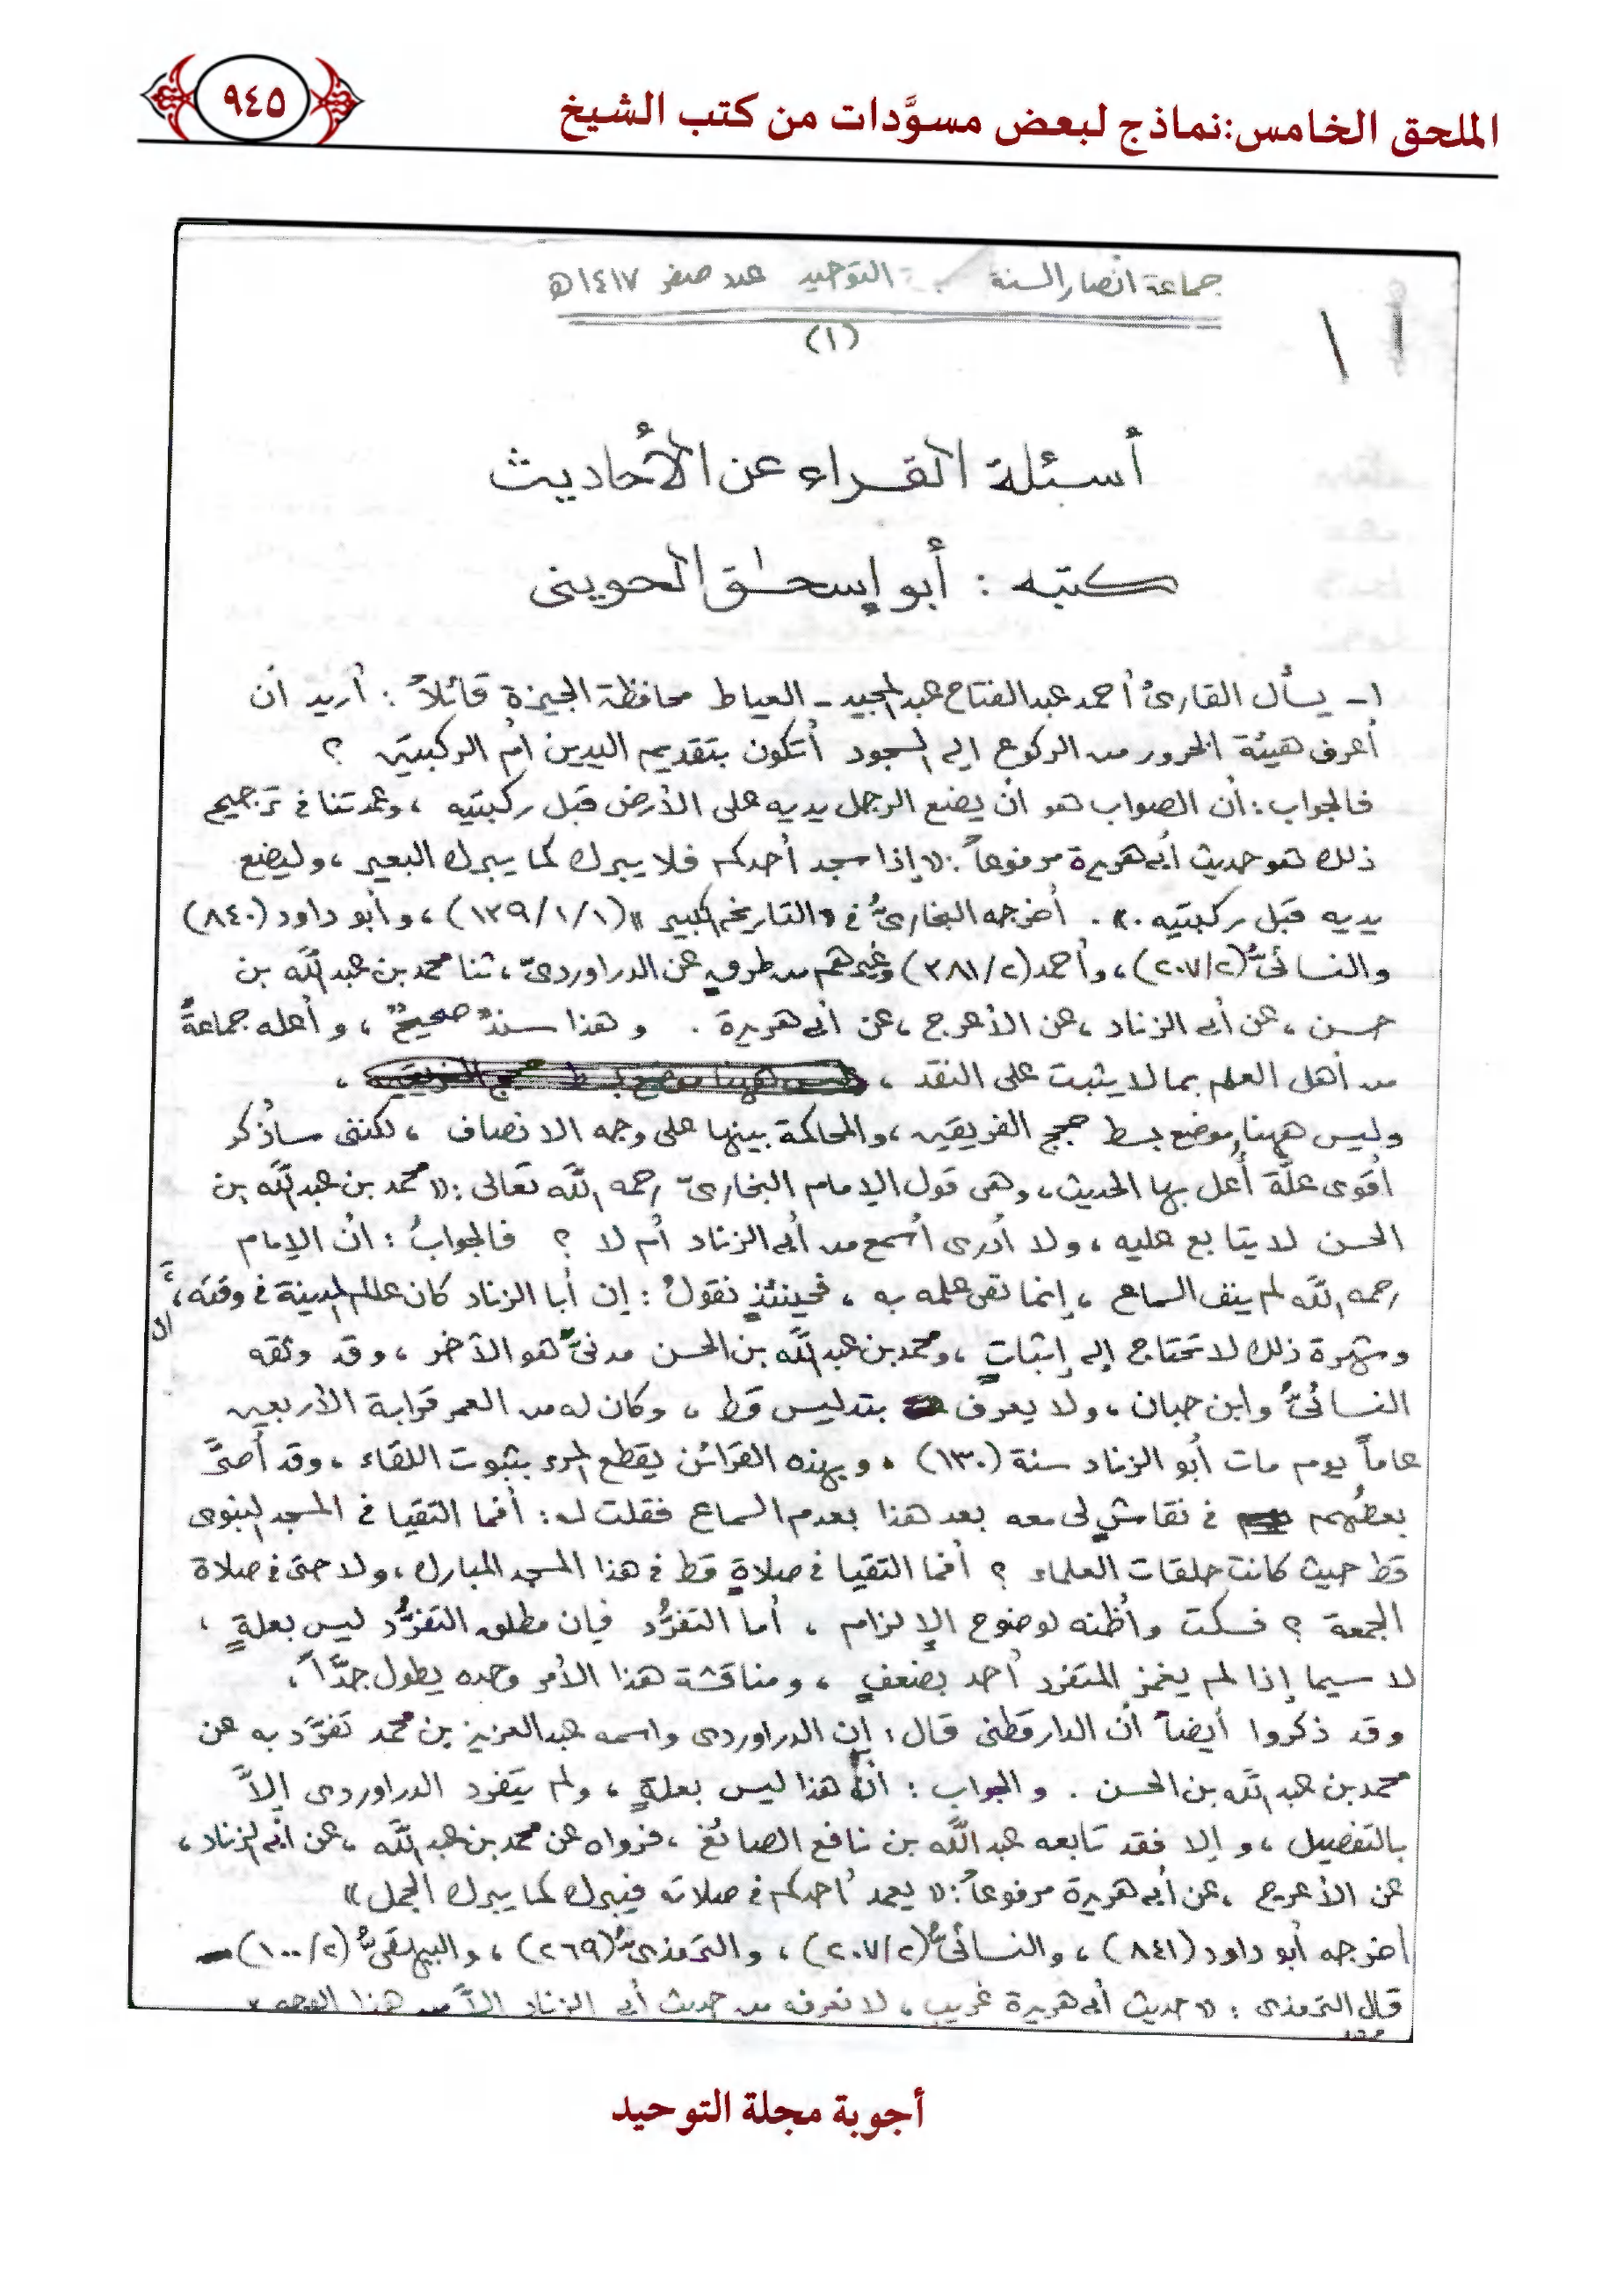 الملحق الخامس:نماذج لبعض مسوَّدات من كتب الشيخ
٩٤٥
جماعة أنصار السنة التوحيد عدد صفر ١٤١٧هـ
(١)
١
أسئلة القراء عن الأحاديث
كتبه : أبو إسحاق الحويني
١- يسأل القارئ أحمد عبد الفتاح عبد المجيد - العياط محافظة الجيزة قائلاً : أريد أن
أعرف هيئة الخرور من الركوع إلى السجود أتكون بتقديم اليدين أم الركبتين ؟
فالجواب : أن الصواب هو أن يضع الرجل يديه على الأرض قبل ركبتيه ، وعمدتنا في ترجيح
ذلك هو حديث أبي هريرة مرفوعاً : « إذا سجد أحدكم فلا يبرك كما يبرك البعير ، وليضع
يديه قبل ركبتيه .» . أخرجه البخاريُّ في «التاريخ الكبير» (١/١/١٣٩) ، وأبو داود (٨٤٠)
والنسائيُّ (٢/٢٠٧) ، وأحمد (٢/٣٨١) وغيرهم من طرقٍ عن الدراورديّ ، ثنا محمد بن عبد الله بن
حسن ، عن أبي الزناد ، عن الأعرج ، عن أبي هريرة . وهذا سندٌ صحيحٌ ، وأعله جماعةٌ
من أهل العلم بما لا يثبت على النقد ، ،
وليس ههنا موضع بسط حجج الفريقين ، والمحاكمة بينهما على وجه الانصاف ، لكنني سأذكر
أقوى علَّة أُعل بها الحديث ، وهي قول الإمام البخاريّ رحمه الله تعالى : « محمد بن عبد الله بن
الحسن لا يتابع عليه ، ولا أدرى أسمع من أبي الزناد أم لا ؟ فالجوابُ : أن الإمام
رحمه الله لم ينف السماع ، إنما نفى علمه به ، فحينئذٍ نقولُ : إن أبا الزناد كان عالم المدينة في وقته ،
وشهرة ذلك لا تحتاج إلى إثباتٍ ، ومحمد بن عبد الله بن الحسن مدنيٌّ هو الآخر ، وقد وثقه
النسائيُّ وابن حبان ، ولا يعرف بتدليس قط ، وكان له من العمر قرابة الأربعين
عاماً يوم مات أبو الزناد سنة (١٣٠) . وبهذه القرائن يقطع المرء بثبوت اللقاء ، وقد أصرَّ
بعضُهم في نقاشٍ لي معه بعد هذا بعدم السماع فقلت له : أفما التقيا في المسجد النبوى
قط حيث كانت حلقات العلماء ؟ أفما التقيا في صلاةٍ قط في هذا المسجد المبارك ، ولا حتى في صلاة
الجمعة ؟ فسكت وأظنه لوضوح الإلزام ، أما التفرُّد فإن مطلق التفرُّد ليس بعلةٍ ،
لا سيما إذا لم يغمز المتفرد أحد بضعفٍ ، ومناقشة هذا الأمر وحده يطول جدًّا ،
وقد ذكروا أيضاً أن الدارقطني قال : إن الدراوردى واسمه عبد العزيز بن محمد تفرَّد به عن
محمد بن عبد الله بن الحسن . والجواب : أنَّ هذا ليس بعلةٍ ، ولم يتفرد الدراوردى إلاَّ
بالتفصيل ، وإلا فقد تابعه عبد الله بن نافع الصائغ ، فرواه عن محمد بن عبد الله ، عن أبي الزناد ،
عن الأعرج ، عن أبي هريرة مرفوعاً : « يعمد أحدكم في صلاته فيبرك كما يبرك الجمل »
أخرجه أبو داود (٨٤١) ، والنسائيُّ (٢/٢٠٧) ، والترمذيُّ (٢٦٩) ، والبيهقيُّ (٢/١٠٠) -
قال الترمذى : « حديث أبي هريرة غريب ، لا نعرفه من حديث أبي الزناد إلاَّ من هذا الوجه »
أجوبة مجلة التوحيد